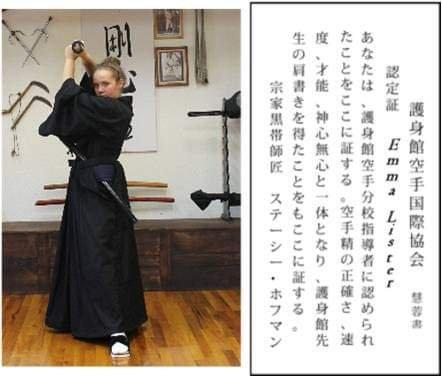 剛
心
護身館空手国際協会
慧蓉書
認定証
Emma Lister
あなたは、護身館空手分校指導者に認められ
たことをここに証する。空手精の正確さ、速
度、才能、神心無心と一体となり、護身館先
生の肩書きを得たことをもここに証する。
宗家黒帯師匠　ステーシー・ホフマン